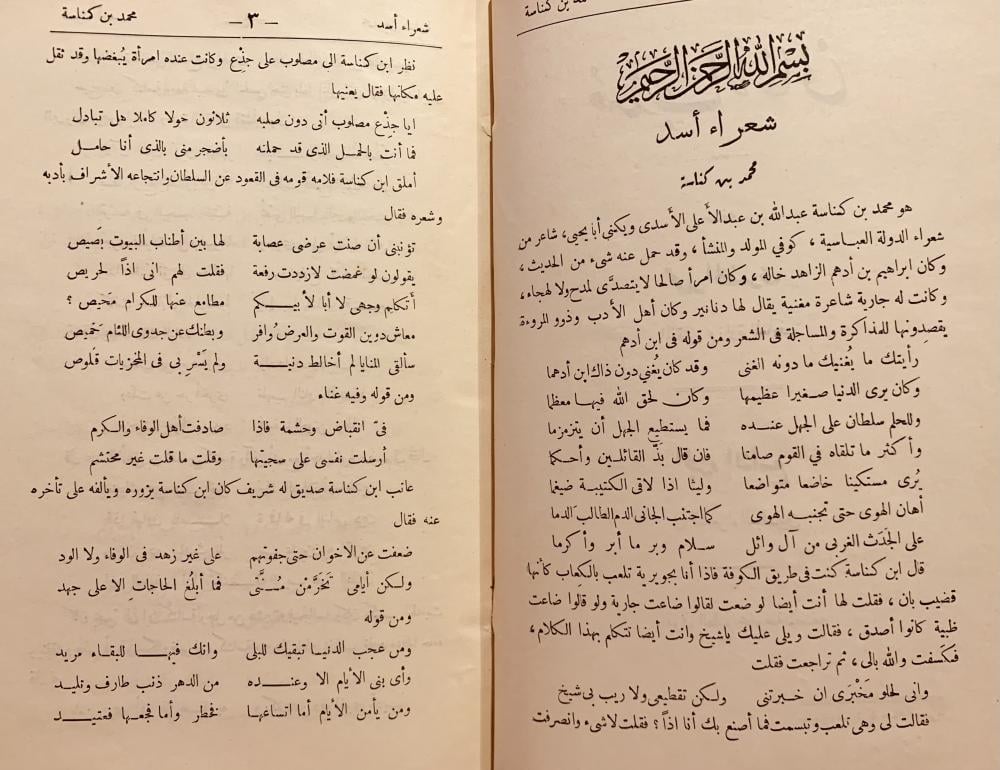 محمد بن كناسة
بسم الله الرحمن الرحيم
شعراء أسد
محمد بن كناسة
هو محمد بن كناسة عبدالله بن عبدالأعلى الأسدى ويكنى أبا يحيى، شاعر من
شعراء الدولة العباسية، كوفي المولد والمنشأ، وقد حمل عنه شىء من الحديث،
وكان ابراهيم بن أدهم الزاهد خاله، وكان امرأ صالحا لا يتصدَّى لمدح ولا لهجاء،
وكانت له جارية شاعرة مغنية يقال لها دنانير وكان أهل الأدب وذوو المروءة
يقصدونها للمذاكرة والمساجلة في الشعر ومن قوله في ابن أدهم
رأيتك ما يُغنيك ما دونه الغنى وقد كان يُغني دون ذاك ابن أدهما
وكان يرى الدنيا صغيرا عظيمها وكان لحق الله فيها معظما
وللحلم سلطان على الجهل عنده فما يستطيع الجهل أن يتزمزما
وأكثر ما تلقاه في القوم صامتا فان قال بَذَّ القائلين وأحكما
يُرى مستكينا خاضعا متواضعا وليثا اذا لاقى الكتيبة ضيغما
أهان الهوى حتى تجنبه الهوى كما اجتنب الجانى الدم الطالب الدما
على الجَدَث الغربى من آل وائل سلام وبر ما أبر وأكرما
قال ابن كناسة كنت فى طريق الكوفة فاذا أنا بجويرية تلعب بالكعاب كأنها
قضيب بان، فقلت لها أنت أيضا لو ضعت لقالوا ضاعت جارية ولو قالوا ضاعت
ظبية كانوا أصدق، فقالت ويلى عليك ياشيخ وانت أيضا تتكلم بهذا الكلام،
فكَسفت والله بالى، ثم تراجعت فقلت
وانى لحلو مَخْبَرى ان خبرتنى ولكن تقطيعى ولا ريب بى شيخ
فقالت لى وهى تلعب وتبسمت فما أصنع بك أنا اذاً؟ فقلت لا شىء وانصرفت
شعراء أسد — ٣ — محمد بن كناسة
نظر ابن كناسة الى مصلوب على جِذْع وكانت عنده امرأة يُبغضها وقد ثقل
عليه مكانها فقال يعنيها
ايا جِذْع مصلوب أتى دون صلبه ثلاثون حولا كاملا هل تبادل
فما أنت بالحمل الذى قد حملته بأضجر منى بالذى أنا حامل
أملق ابن كناسة فلامه قومه فى القعود عن السلطان وانتجاعه الأشراف بأدبه
وشعره فقال
تؤنبنى أن صنت عرضى عصابة لها بين أطناب البيوت بَصيص
يقولون لو غمضت لازددت رفعة فقلت لهم انى اذاً لحريص
أتكلم وجهى لا أبا لأبيكم مطامع عنها للكرام مَحيص؟
معاش دوين القوت والعرض وافر وبطنك عن جدوى اللئام خميص
سألقى المنايا لم أخالط دنية ولم يَسْرِ بى فى المخزيات قلوص
ومن قوله وفيه غناء
فىّ انقباض وحشمة فاذا صادفت أهل الوفاء والكرم
أرسلت نفسى على سجيتها وقلت ما قلت غير محتشم
عاتب ابن كناسة صديق له شريف كان ابن كناسة يزوره ويألفه على تأخره
عنه فقال
ضعفت عن الاخوان حتى جفوتهم على غير زهد فى الوفاء ولا الود
ولكن أيامى تَخَرَّمْن مُنَّتى فما أبلُغ الحاجات الا على جهد
ومن قوله
ومن عجب الدنيا تبقيك للبلى وانك فيها للبقاء مريد
وأى بنى الأيام الا وعنده من الدهر ذنب طارف وتليد
ومن يأمن الأيام أما اتساعها فخطر وأما فجعها فعتيد